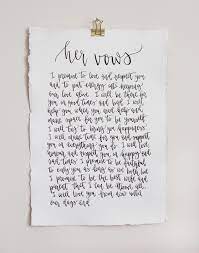 her vows
I promise to love and respect you
and to put energy into keeping
our love alive. I will be there for
you in good times and bad. I will
help you when you need help and
make space for you to be yourself.
I will try to bring you happiness.
I will make time for you and support
you in everything you do. I will love
and respect you in happy and
sad times. I promise to be faithful
to you as long as we both
I promise to be the best wife and
that I can be. Above all,
I will love you from now until
our days end.